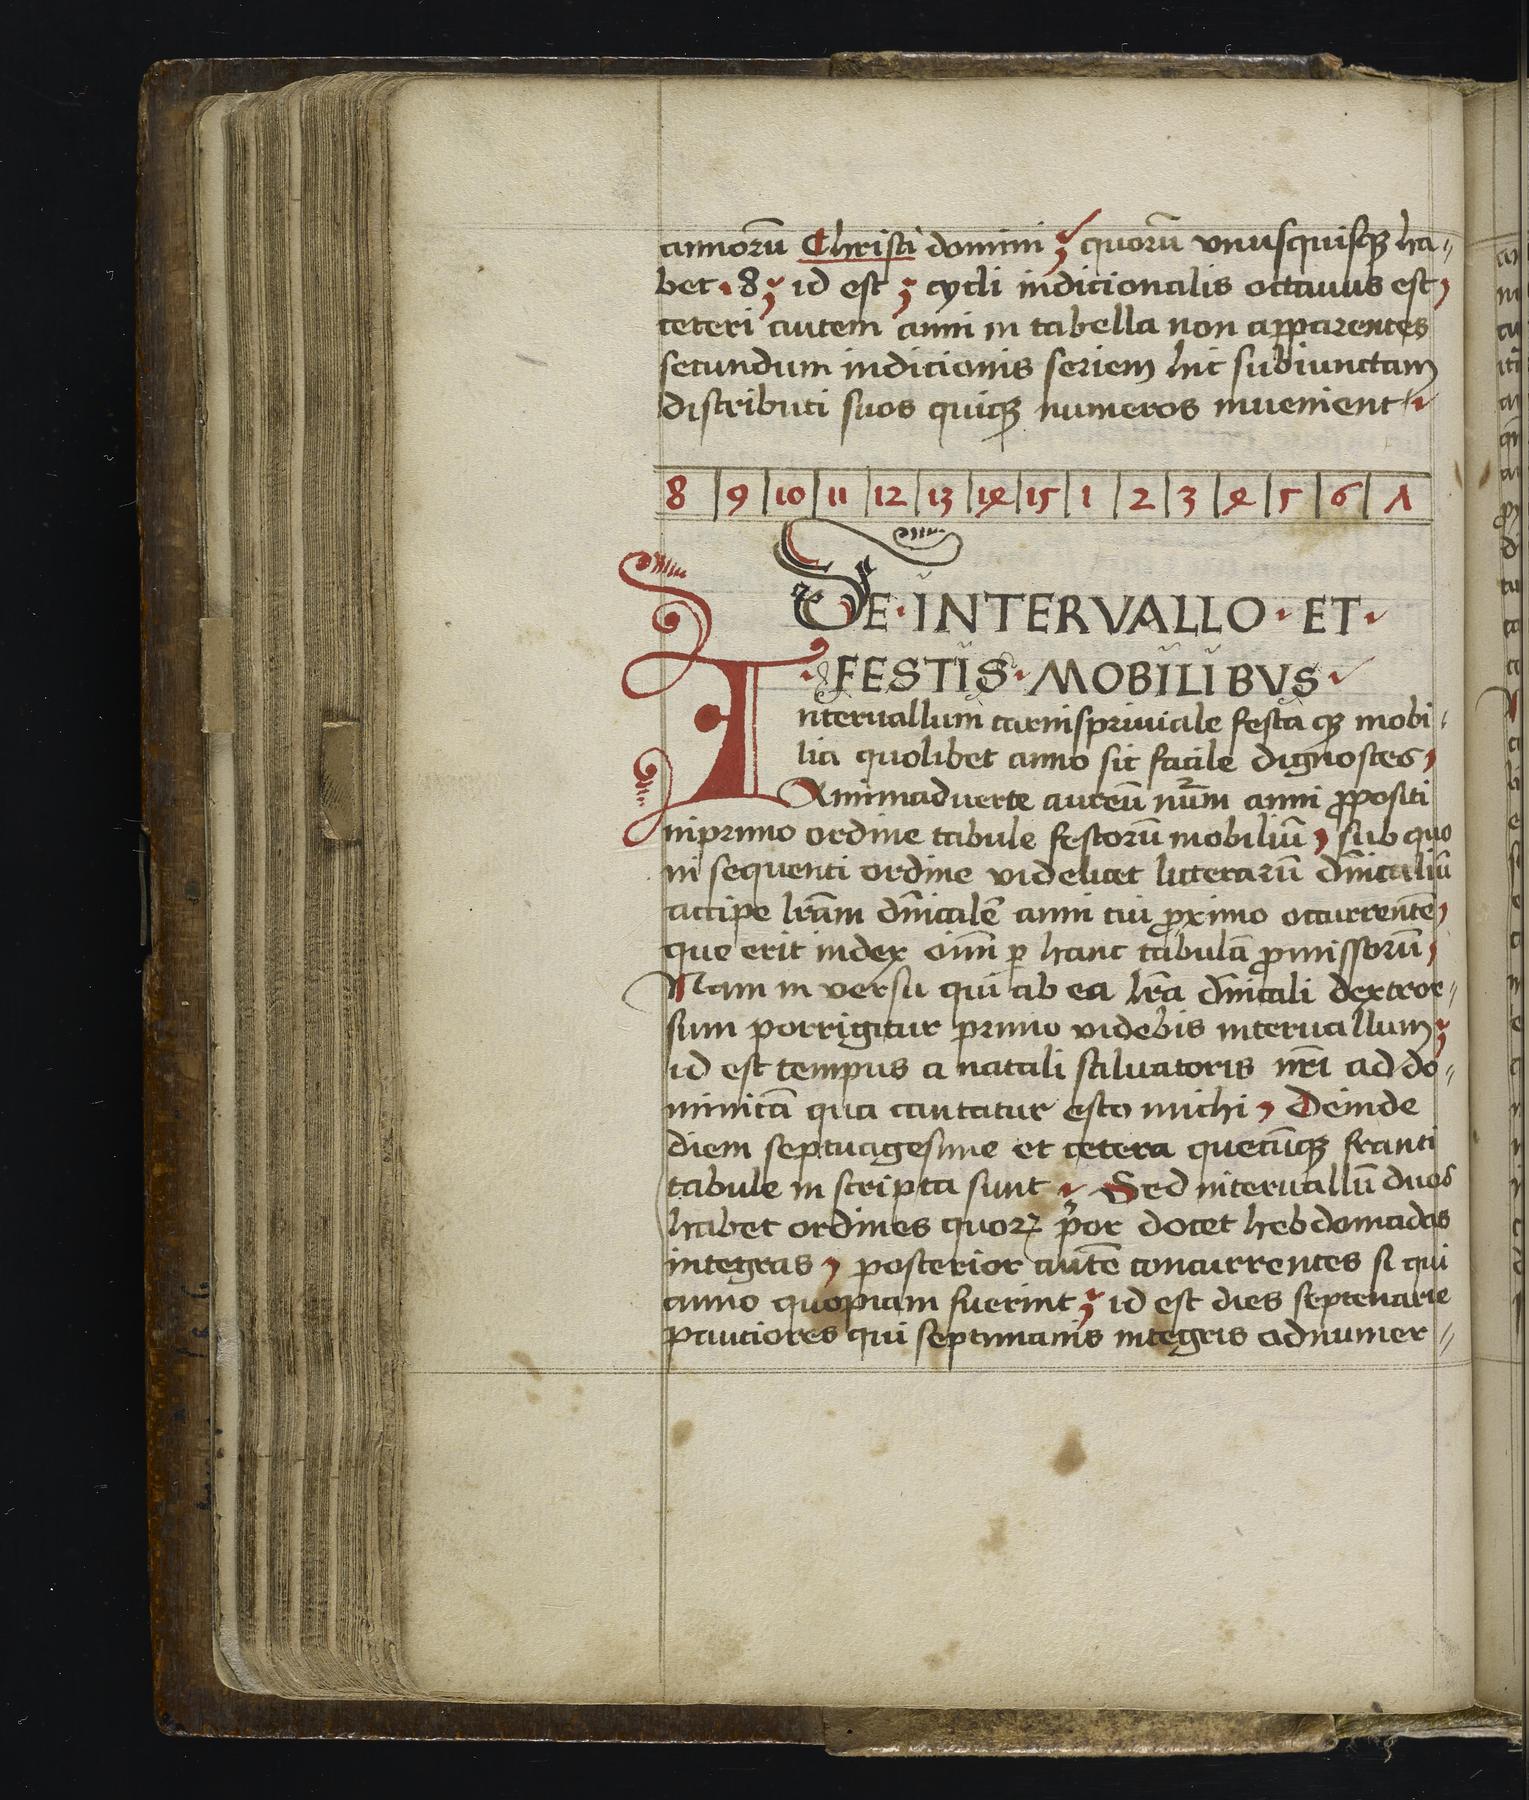 annorū Christi domini ; quorū vnusquisq₃ ha⸗
bet · 8 ; id est ; cycli indicionalis octauus est,
ceteri autem anni in tabella non apparentes
secundum indicionis seriem hic subiunctam
distributi suos quicq₃ numeros inuenient ·
8 | 9 | 10 | 11 | 12 | 13 | 14 | 15 | 1 | 2 | 3 | 4 | 5 | 6 | 7
DE · INTERVALLO · ET ·
· FESTIS · MOBILIBVS ·
Interuallum carnispriuiale festa q₃ mobi⸗
lia quolibet anno sic facile dignosces,
Animaduerte aureū nūm anni ꝓpositi
in primo ordine tabule festorū mobiliū, sub quo
in sequenti ordine videlicet litterarū dn̄icaliū
accipe lr̄am dn̄icalē anni tui ꝓximo occurrentē,
que erit index oīm ꝑ hanc tabulā ꝓmissorū,
Nam in versu qui ab ea lr̄a dn̄icali dextror⸗
sum porrigitur primo videbis interuallum ;
id est tempus a natali saluatoris nr̄i ad do⸗
minicā qua cantatur esto michi, Deinde
diem septuagesime et cetera quecūq₃ franti
tabule in scripta sunt · Sed interuallū duos
habet ordines quoꝝ p̄or docet hebdomadas
integras, posterior autē concurrentes si qui
anno quopiam fuerint ; id est dies septenarie
pauciores qui septimanis integris adnumer⸗